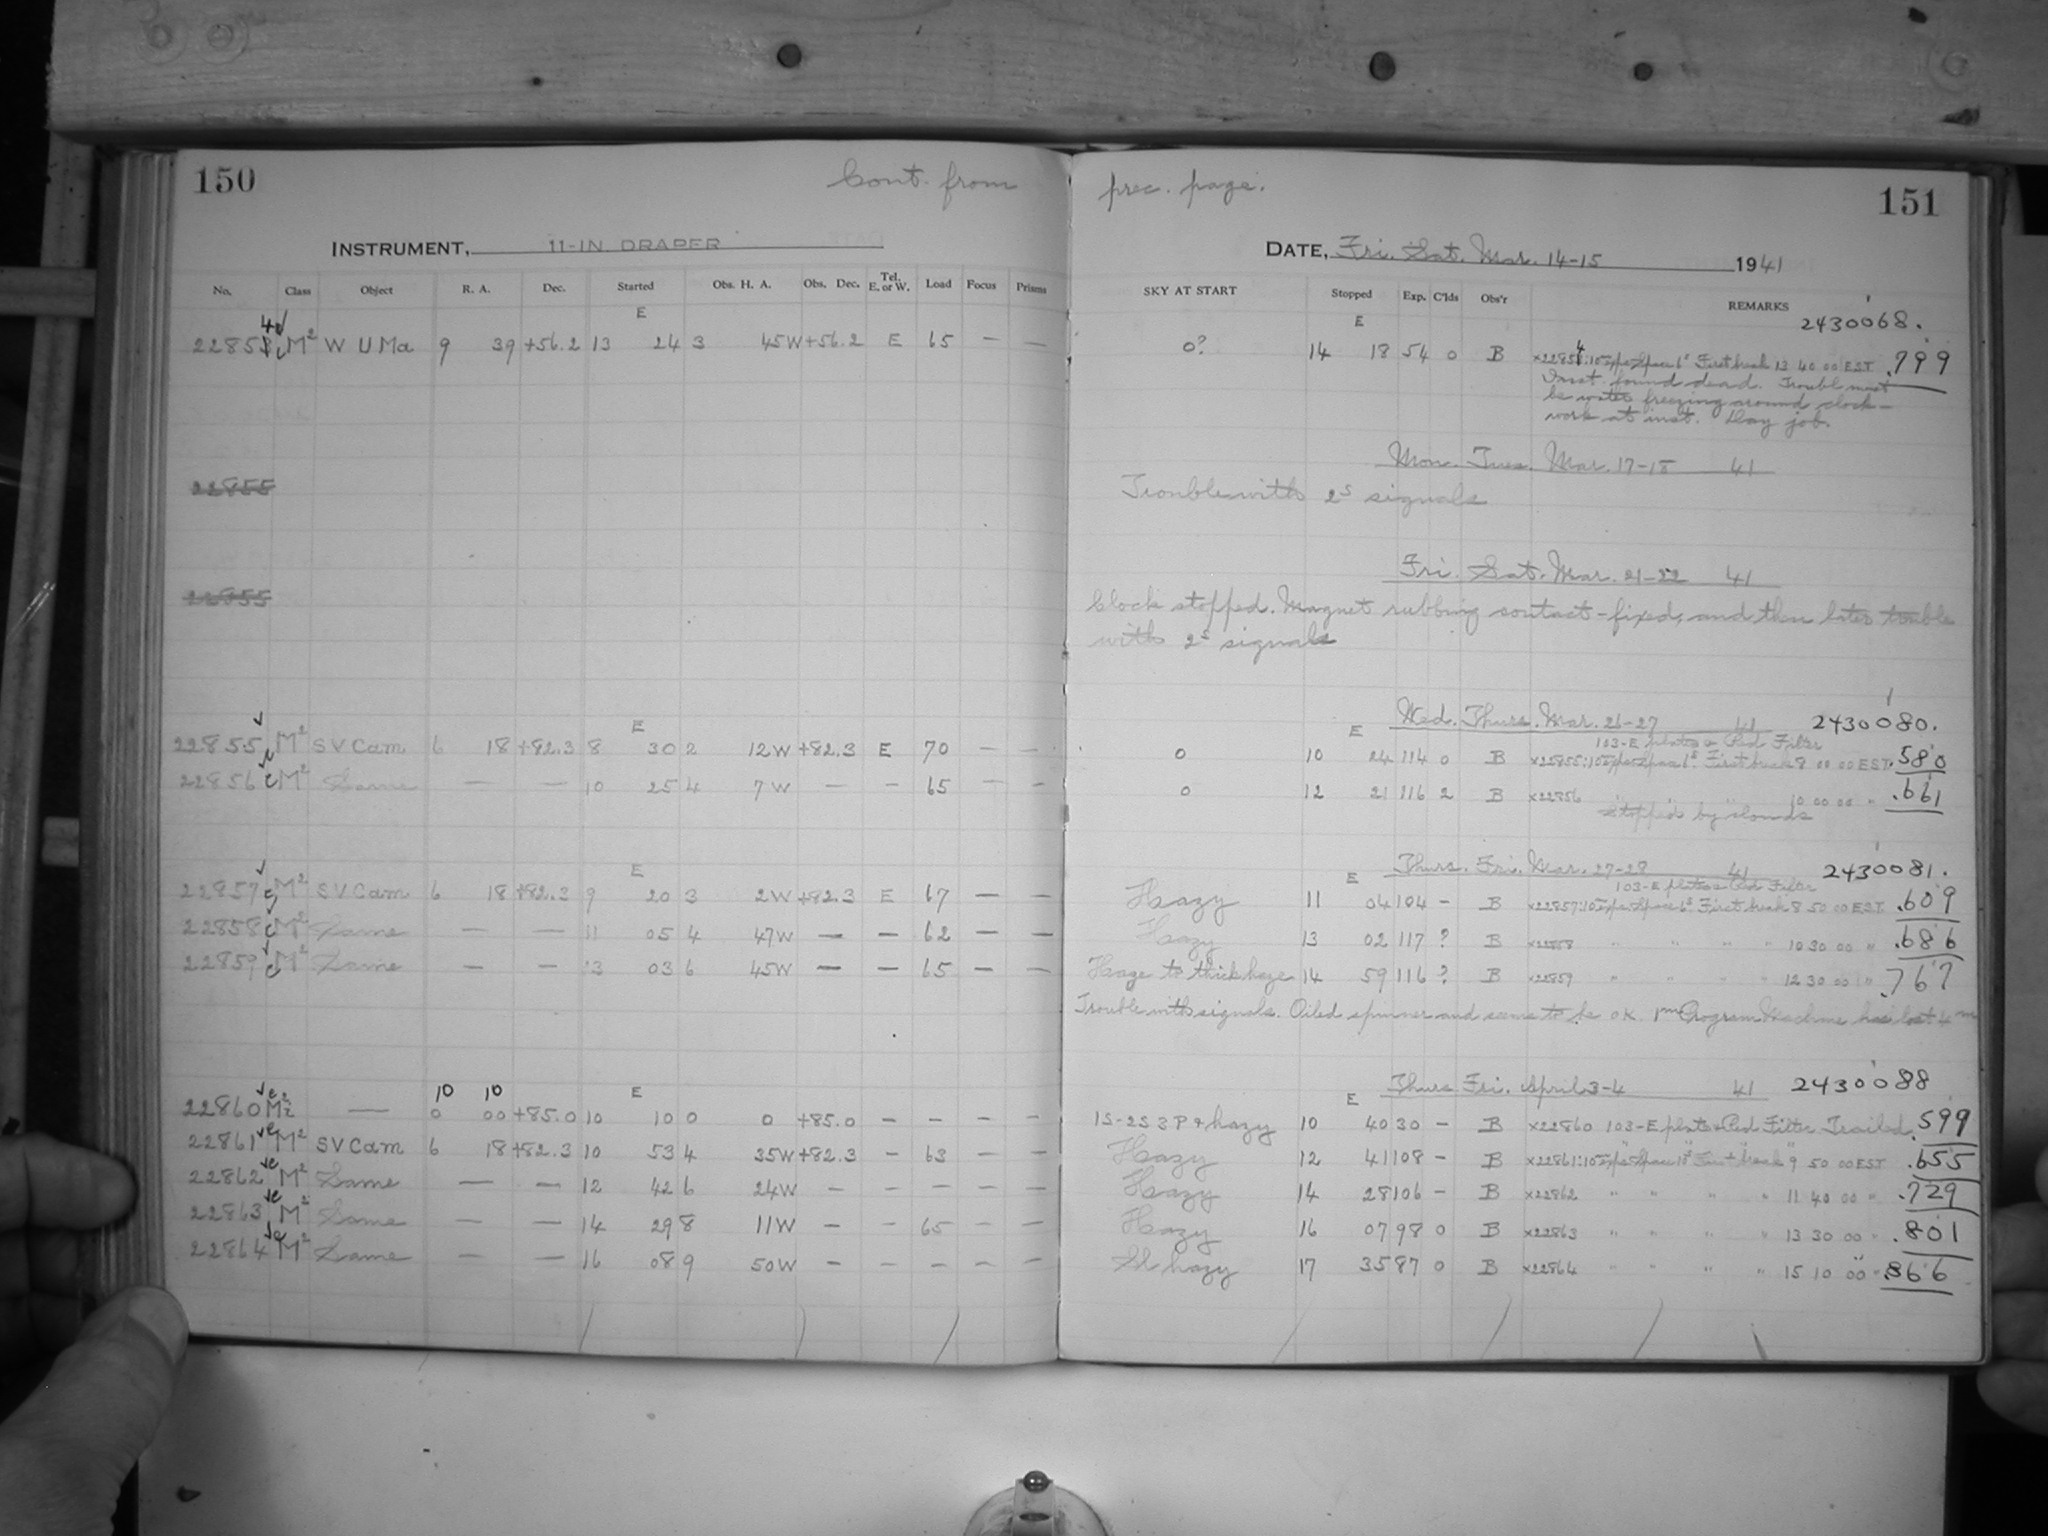 150 Cont. from prec. page. 151
INSTRUMENT, 11-IN DRAPER DATE, Fri. Sat. Mar. 14-15 1941
No. Class Object R. A. Dec. Started Obs. H. A. Obs. Dec. Tel. E. or W. Load Focus Prisms SKY AT START Stopped Exp. C'lds Obs'r REMARKS
E E 2430068.
22854 M² W U Ma 9 39 +56.2 13 24 3 45W +56.2 E 65 — — 0? 14 18 54 0 B x22854:10 exps Space 1ˢ First break 13 40 00 EST .799
Inst. found dead. Trouble must
be water freezing around clock-
work at inst. Day job.
Mon. Tues. Mar. 17-18 41
22855 Trouble with 2ˢ signals
Fri. Sat. Mar. 21-22 41
22855 Clock stopped. Magnet rubbing contact - fixed, and then later trouble
with 2ˢ signals
E E Wed. Thurs. Mar. 26-27 41 2430080.
103-E plates Red Filter
22855 M² SV Cam 6 18 +82.3 8 30 2 12W +82.3 E 70 — — 0 10 24 114 0 B x22855:10 exps Space 1ˢ First break 8 00 00 EST .580
22856 M² Same — — 10 25 4 7W — — 65 — — 0 12 21 116 2 B x22856 " " " " 10 00 00 " .661
Stopped by clouds
E E Thurs. Fri. Mar. 27-28 41 2430081.
103-E plates Red Filter
22857 M² SV Cam 6 18 +82.3 9 20 3 2W +82.3 E 67 — — Hazy 11 04 104 - B x22857:10 exps Space 1ˢ First break 8 50 00 EST .609
22858 M² Same — — 11 05 4 47W — — 62 — — Hazy 13 02 117 ? B x22858 " " " " 10 30 00 " .686
22859 M² Same — — 13 03 6 45W — — 65 — — Haze to thick haze 14 59 116 ? B x22859 " " " " 12 30 00 " .767
Trouble with signals. Oiled spinner and seems to be OK. 1ᵐ Program Machine has lost 4ᵐ
10 10 E E Thurs. Fri. April 3-4 41 2430088
22860 M² — 0 00 +85.0 10 10 0 0 +85.0 — — — — 1S-2S 3P + hazy 10 40 30 - B x22860 103-E plates Red Filter Trailed .599
22861 M² SV Cam 6 18 +82.3 10 53 4 35W +82.3 — 63 — — Hazy 12 41 108 - B x22861:10 exps Space 1ˢ First break 9 50 00 EST .655
22862 M² Same — — 12 42 6 24W — — — — — Hazy 14 28 106 - B x22862 " " " " 11 40 00 " .729
22863 M² Same — — 14 29 8 11W — — 65 — — Hazy 16 07 98 0 B x22863 " " " " 13 30 00 " .801
22864 M² Same — — 16 08 9 50W — — — — — Sl hazy 17 35 87 0 B x22864 " " " " 15 10 00 " .866